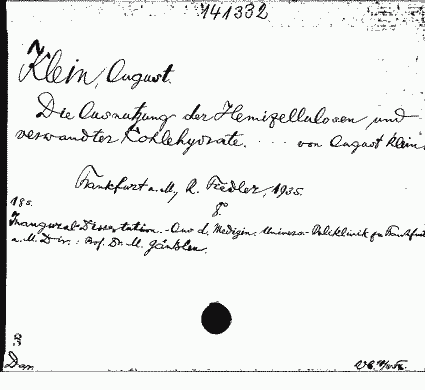 141332
Klein, August.
Die Ausnutzung der Hemizellulosen und
verwandter Kohlehydrate. . . . von August Klein.
Frankfurt a. M., R. Fiedler, 1935.
8°
18 S.
Inaugural-Dissertation. - Aus d. Medizin. Univers.- Poliklinik zu Frankfurt
a. M. Dir.: Prof. Dr. M. Gänsslen.